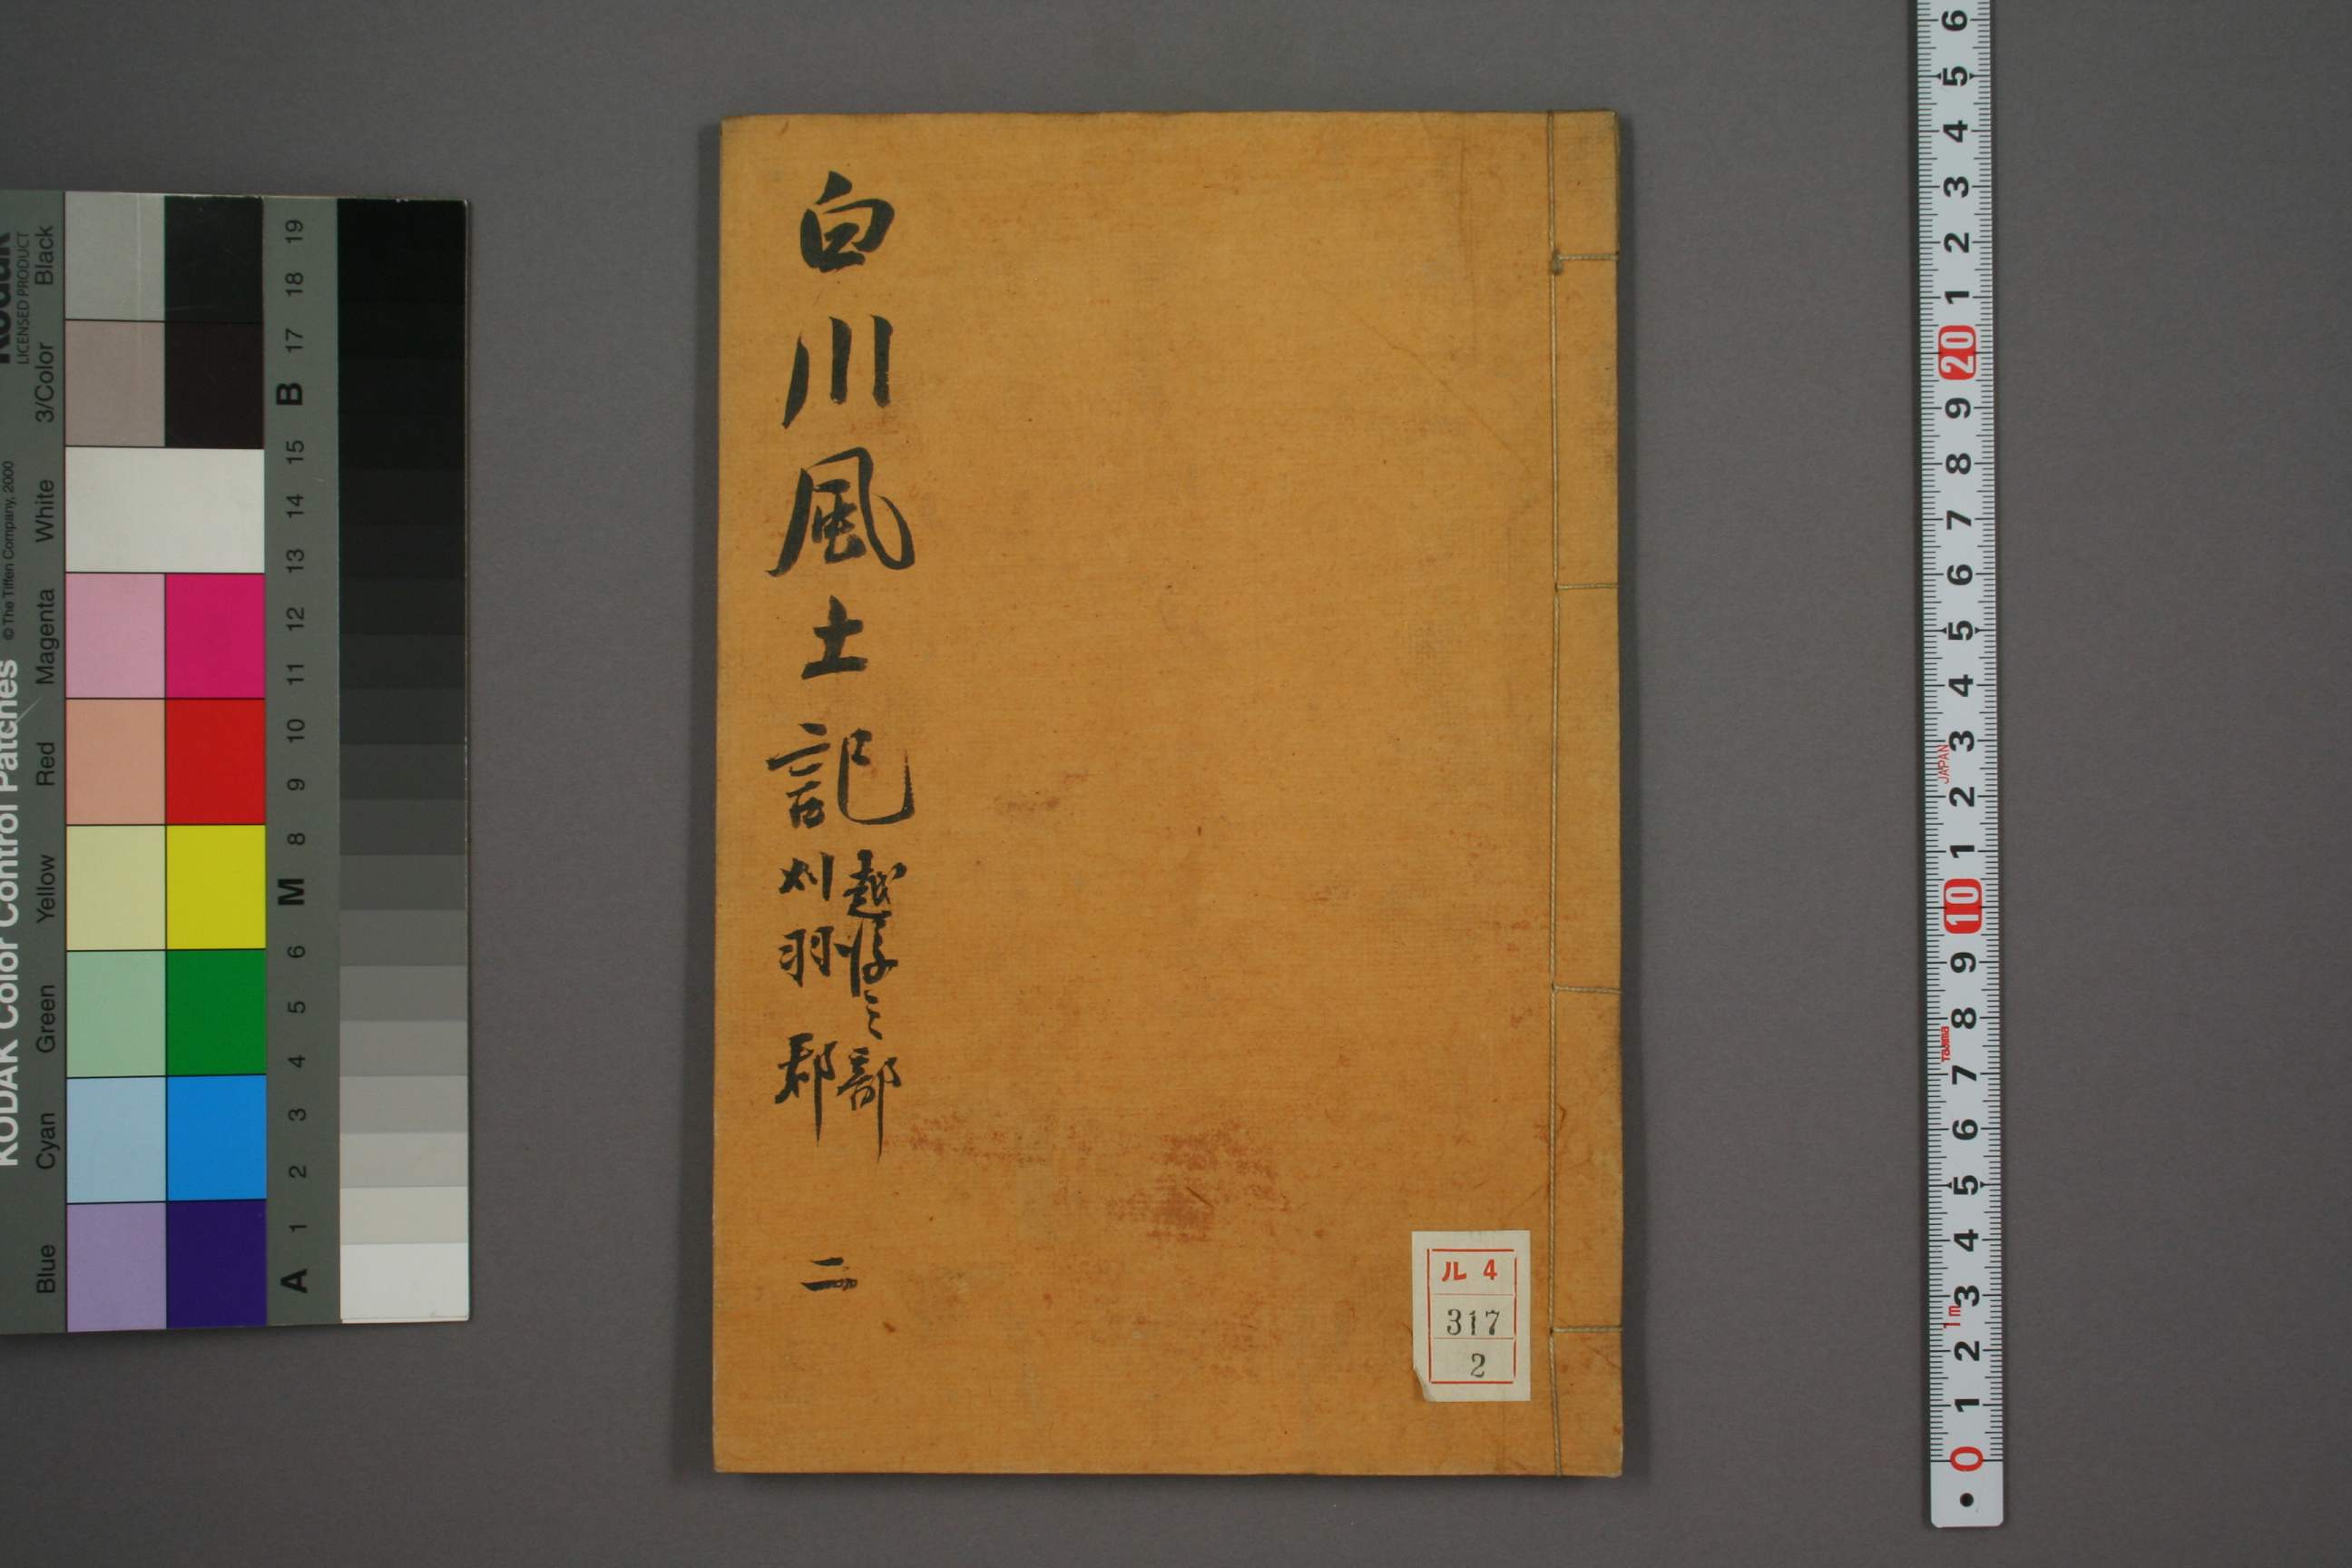 白川風土記
越後之部
刈羽郡
二
ル 4
317
2
KODAK Color Control Patches
© The Tiffen Company, 2000
Kodak
LICENSED PRODUCT
Blue Cyan Green Yellow Red Magenta White 3/Color Black
A 1 2 3 4 5 6 M 8 9 10 11 12 13 14 15 B 17 18 19
6 5 4 3 2 1 20 9 8 7 6 5 4 3 2 1 10 9 8 7 6 5 4 3 2 1 0
JAPAN
Tajima
1m